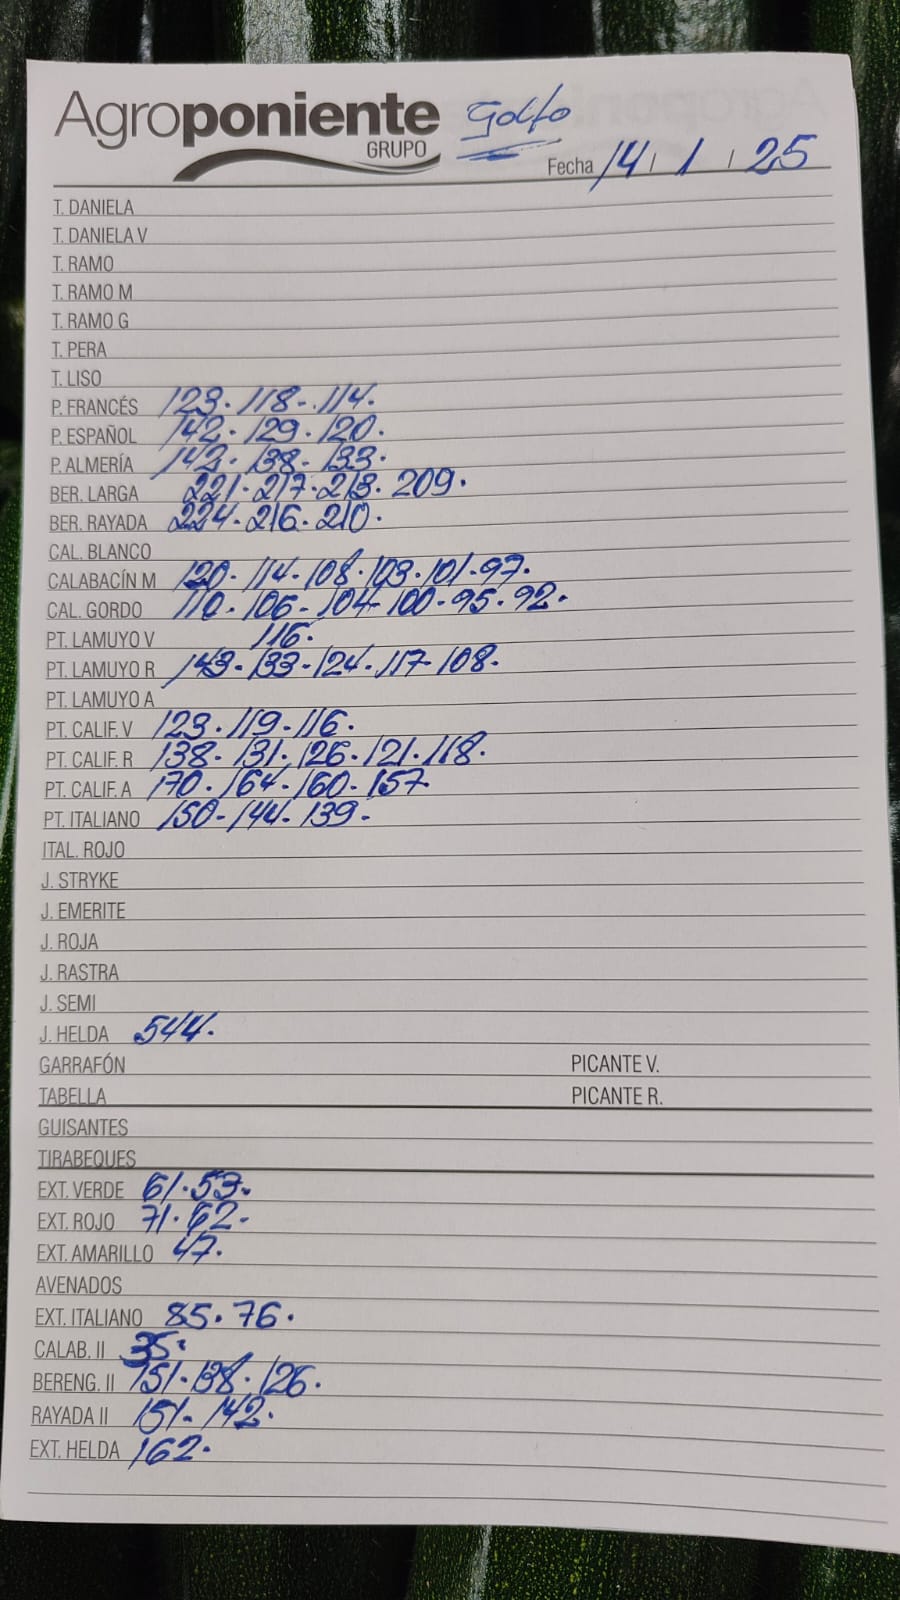 Agroponiente Golfo
GRUPO
Fecha 14 / 1 / 25
T. DANIELA
T. DANIELA V
T. RAMO
T. RAMO M
T. RAMO G
T. PERA
T. LISO
P. FRANCÉS 123. 118-. 114.
P. ESPAÑOL 142. 129. 120.
P. ALMERÍA 142. 138- 133.
BER. LARGA 221. 217. 213. 209.
BER. RAYADA 224. 216. 210.
CAL. BLANCO
CALABACÍN M 120. 114. 108. 103. 101. 97.
CAL. GORDO 110. 106- 104- 100- 95. 92.
PT. LAMUYO V 116.
PT. LAMUYO R 143. 133- 124. 117- 108.
PT. LAMUYO A
PT. CALIF. V 123. 119- 116.
PT. CALIF. R 138- 131. 126. 121. 118.
PT. CALIF. A 170. 164- 160- 157.
PT. ITALIANO 150- 144. 139.
ITAL. ROJO
J. STRYKE
J. EMERITE
J. ROJA
J. RASTRA
J. SEMI
J. HELDA 544.
GARRAFÓN PICANTE V.
TABELLA PICANTE R.
GUISANTES
TIRABEQUES
EXT. VERDE 61. 53.
EXT. ROJO 71. 62.
EXT. AMARILLO 47.
AVENADOS
EXT. ITALIANO 85. 76.
CALAB. II 35.
BERENG. II 151. 138. 126.
RAYADA II 151- 142.
EXT. HELDA 162.